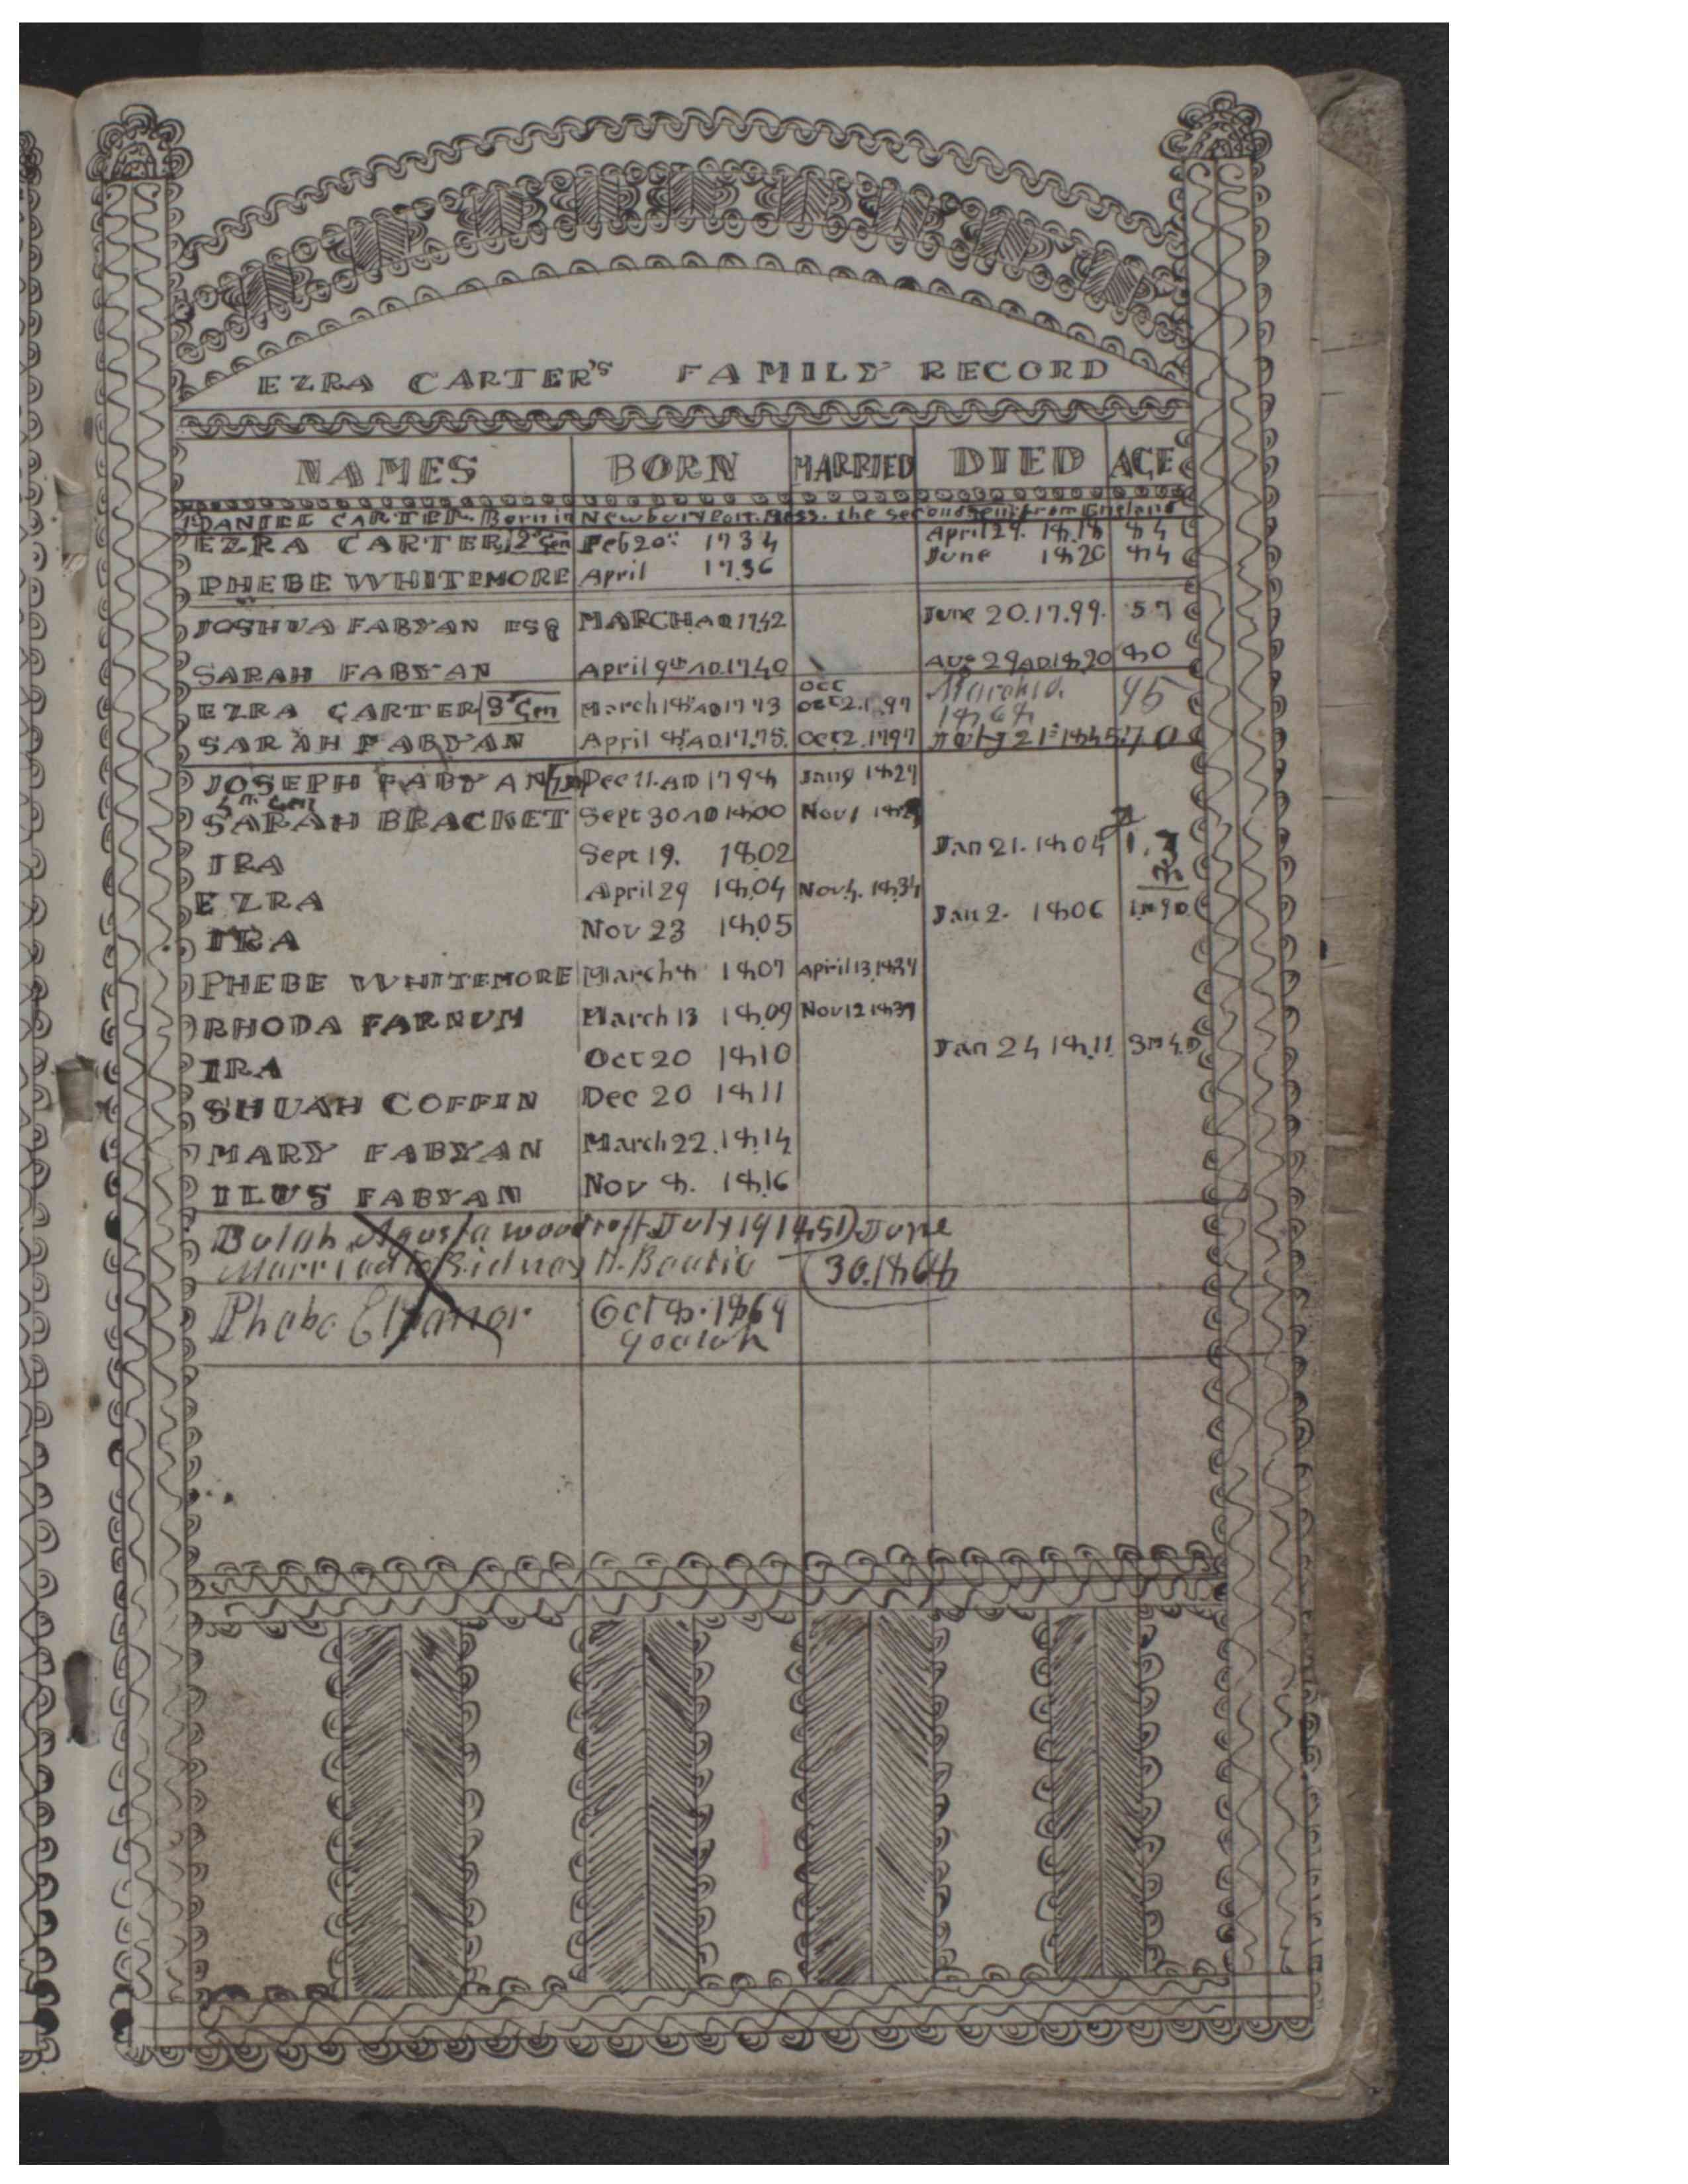 EZRA CARTER'S FAMILY RECORD
NAMES BORN MARRIED DIED AGE
DANIEL CARTER Born in Newbury Port. Mess. the second from England
EZRA CARTER 2d Gen Feb 20th 1734 April 29. 1818 84
PHEBE WHITEMORE April 1736 June 1820 84
JOSHUA FABYAN ESQ MARCH AD 1742 June 20.17.99. 57
SARAH FABYAN April 9th AD.1740 Aug 29 AD 1820 80
EZRA CARTER 3d Gen March 18th AD 1773 Oct 2. 1797 March 1868 95
SARAH FABYAN April 8th AD.1775. Oct 2. 1797 July 21st 1845 70
JOSEPH FABYAN Dec 11. AD 1798 Jan 9 1827
4th Gen
SARAH BRACKET Sept 30 AD 1800 Nov 1
IRA Sept 19. 1802 Jan 21. 1804
EZRA April 29 1804 Nov 4. 1834
IRA Nov 23 1805 Jan 2. 1806 1m 9D
PHEBE WHITEMORE March 8 1807 April 13
RHODA FARNUM March 13 1809 Nov 12 1837
IRA Oct 20 1810 Jan 24 1811 3m 4D
SHUAH COFFIN Dec 20 1811
MARY FABYAN March 22. 1814
ILUS FABYAN Nov 8. 1816
Bulah Agusta woodroff July 19 1851) June
Married to Sidney H. Beatie (30.1868
Phebe Eleanor Oct 8. 1869